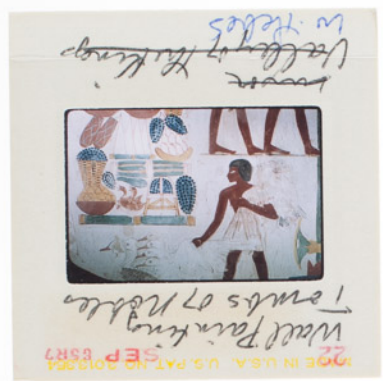 MADE IN U.S.A. U.S. PAT. NO. 3013354
22 SEP
Wall Painting
Tombs of Nobles
Valley of the Kings
in Thebes